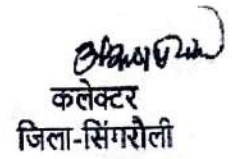 कलेक्टर
जिला-सिंगरौली